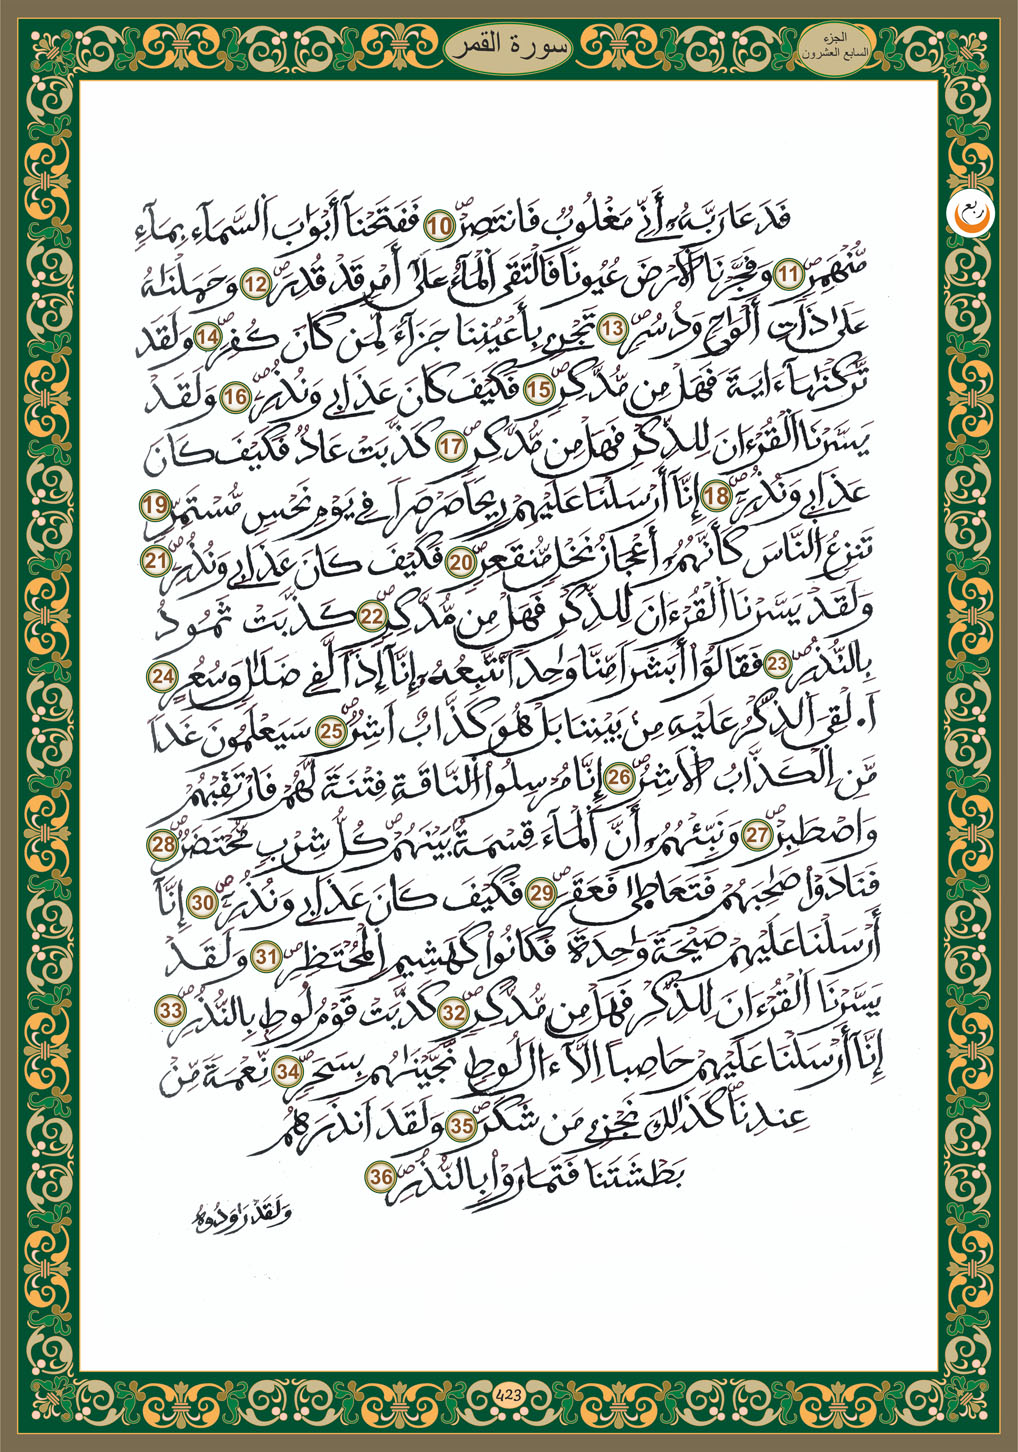 سورة القمر
الجزء
السابع العشرون
ربع
فَدَعَا رَبَّهُۥٓ أَنِّي مَغْلُوبٌ فَانتَصِرْ 10 فَفَتَحْنَآ أَبْوَٰبَ اَ۬لسَّمَآءِ بِمَآءٖ
مُّنْهَمِرٖ 11 وَفَجَّرْنَا اَ۬لَارْضَ عُيُوناٗ فَالْتَقَى اَ۬لْمَآءُ عَلَىٰٓ أَمْرٖ قَدْ قُدِرَ 12 وَحَمَلْنَٰهُ
عَلَىٰ ذَاتِ أَلْوَٰحٖ وَدُسُرٖ 13 تَجْرِے بِأَعْيُنِنَا جَزَآءٗ لِّمَن كَانَ كُفِرَ 14 وَلَقَد
تَّرَكْنَٰهَآ ءَايَةٗ فَهَلْ مِن مُّدَّكِرٖ 15 فَكَيْفَ كَانَ عَذَابِے وَنُذُرِ 16 وَلَقَدْ
يَسَّرْنَا اَ۬لْقُرْءَانَ لِلذِّكْرِ فَهَلْ مِن مُّدَّكِرٖ 17 كَذَّبَتْ عَادٌ فَكَيْفَ كَانَ
عَذَابِے وَنُذُرِ 18 إِنَّآ أَرْسَلْنَا عَلَيْهِمْ رِيحاٗ صَرْصَراٗ فِے يَوْمِ نَحْسٖ مُّسْتَمِرّٖ 19
تَنزِعُ اُ۬لنَّاسَ كَأَنَّهُمُۥٓ أَعْجَازُ نَخْلٖ مُّنقَعِرٖ 20 فَكَيْفَ كَانَ عَذَابِے وَنُذُرِ 21
وَلَقَدْ يَسَّرْنَا اَ۬لْقُرْءَانَ لِلذِّكْرِ فَهَلْ مِن مُّدَّكِرٖ 22 كَذَّبَتْ ثَمُودُ
بِالنُّذُرِ 23 فَقَالُوٓاْ أَبَشَراٗ مِّنَّا وَٰحِداٗ نَّتَّبِعُهُۥٓ إِنَّآ إِذاٗ لَّفِے ضَلَٰلٖ وَسُعُرٍ 24
اَ۟ءُلْقِيَ اَ۬لذِّكْرُ عَلَيْهِ مِنۢ بَيْنِنَا بَلْ هُوَ كَذَّابٌ اَشِرٞ 25 سَيَعْلَمُونَ غَداٗ
مَّنِ اِ۬لْكَذَّابُ اُ۬لَاشِرُ 26 إِنَّا مُرْسِلُواْ اُ۬لنَّاقَةِ فِتْنَةٗ لَّهُمْ فَارْتَقِبْهُمْ
وَاصْطَبِرْ 27 وَنَبِّئْهُمُۥٓ أَنَّ اَ۬لْمَآءَ قِسْمَةُۢ بَيْنَهُمْ كُلُّ شِرْبٖ مُّحْتَضَرٞ 28
فَنَادَوْاْ صَٰحِبَهُمْ فَتَعَاطَىٰ فَعَقَرَ 29 فَكَيْفَ كَانَ عَذَابِے وَنُذُرِ 30 إِنَّآ
أَرْسَلْنَا عَلَيْهِمْ صَيْحَةٗ وَٰحِدَةٗ فَكَانُواْ كَهَشِيمِ اِ۬لْمُحْتَظِرِ 31 وَلَقَدْ
يَسَّرْنَا اَ۬لْقُرْءَانَ لِلذِّكْرِ فَهَلْ مِن مُّدَّكِرٖ 32 كَذَّبَتْ قَوْمُ لُوطِۢ بِالنُّذُرِ 33
إِنَّآ أَرْسَلْنَا عَلَيْهِمْ حَاصِباً اِلَّآ ءَالَ لُوطٖ نَّجَّيْنَٰهُم بِسَحَرٖ 34 نِّعْمَةٗ مِّنْ
عِندِنَا كَذَٰلِكَ نَجْزِے مَن شَكَرَ 35 وَلَقَدَ اَنذَرَهُم
بَطْشَتَنَا فَتَمَارَوْاْ بِالنُّذُرِ 36
وَلَقَدْ رَٰوَدُوهُ
423